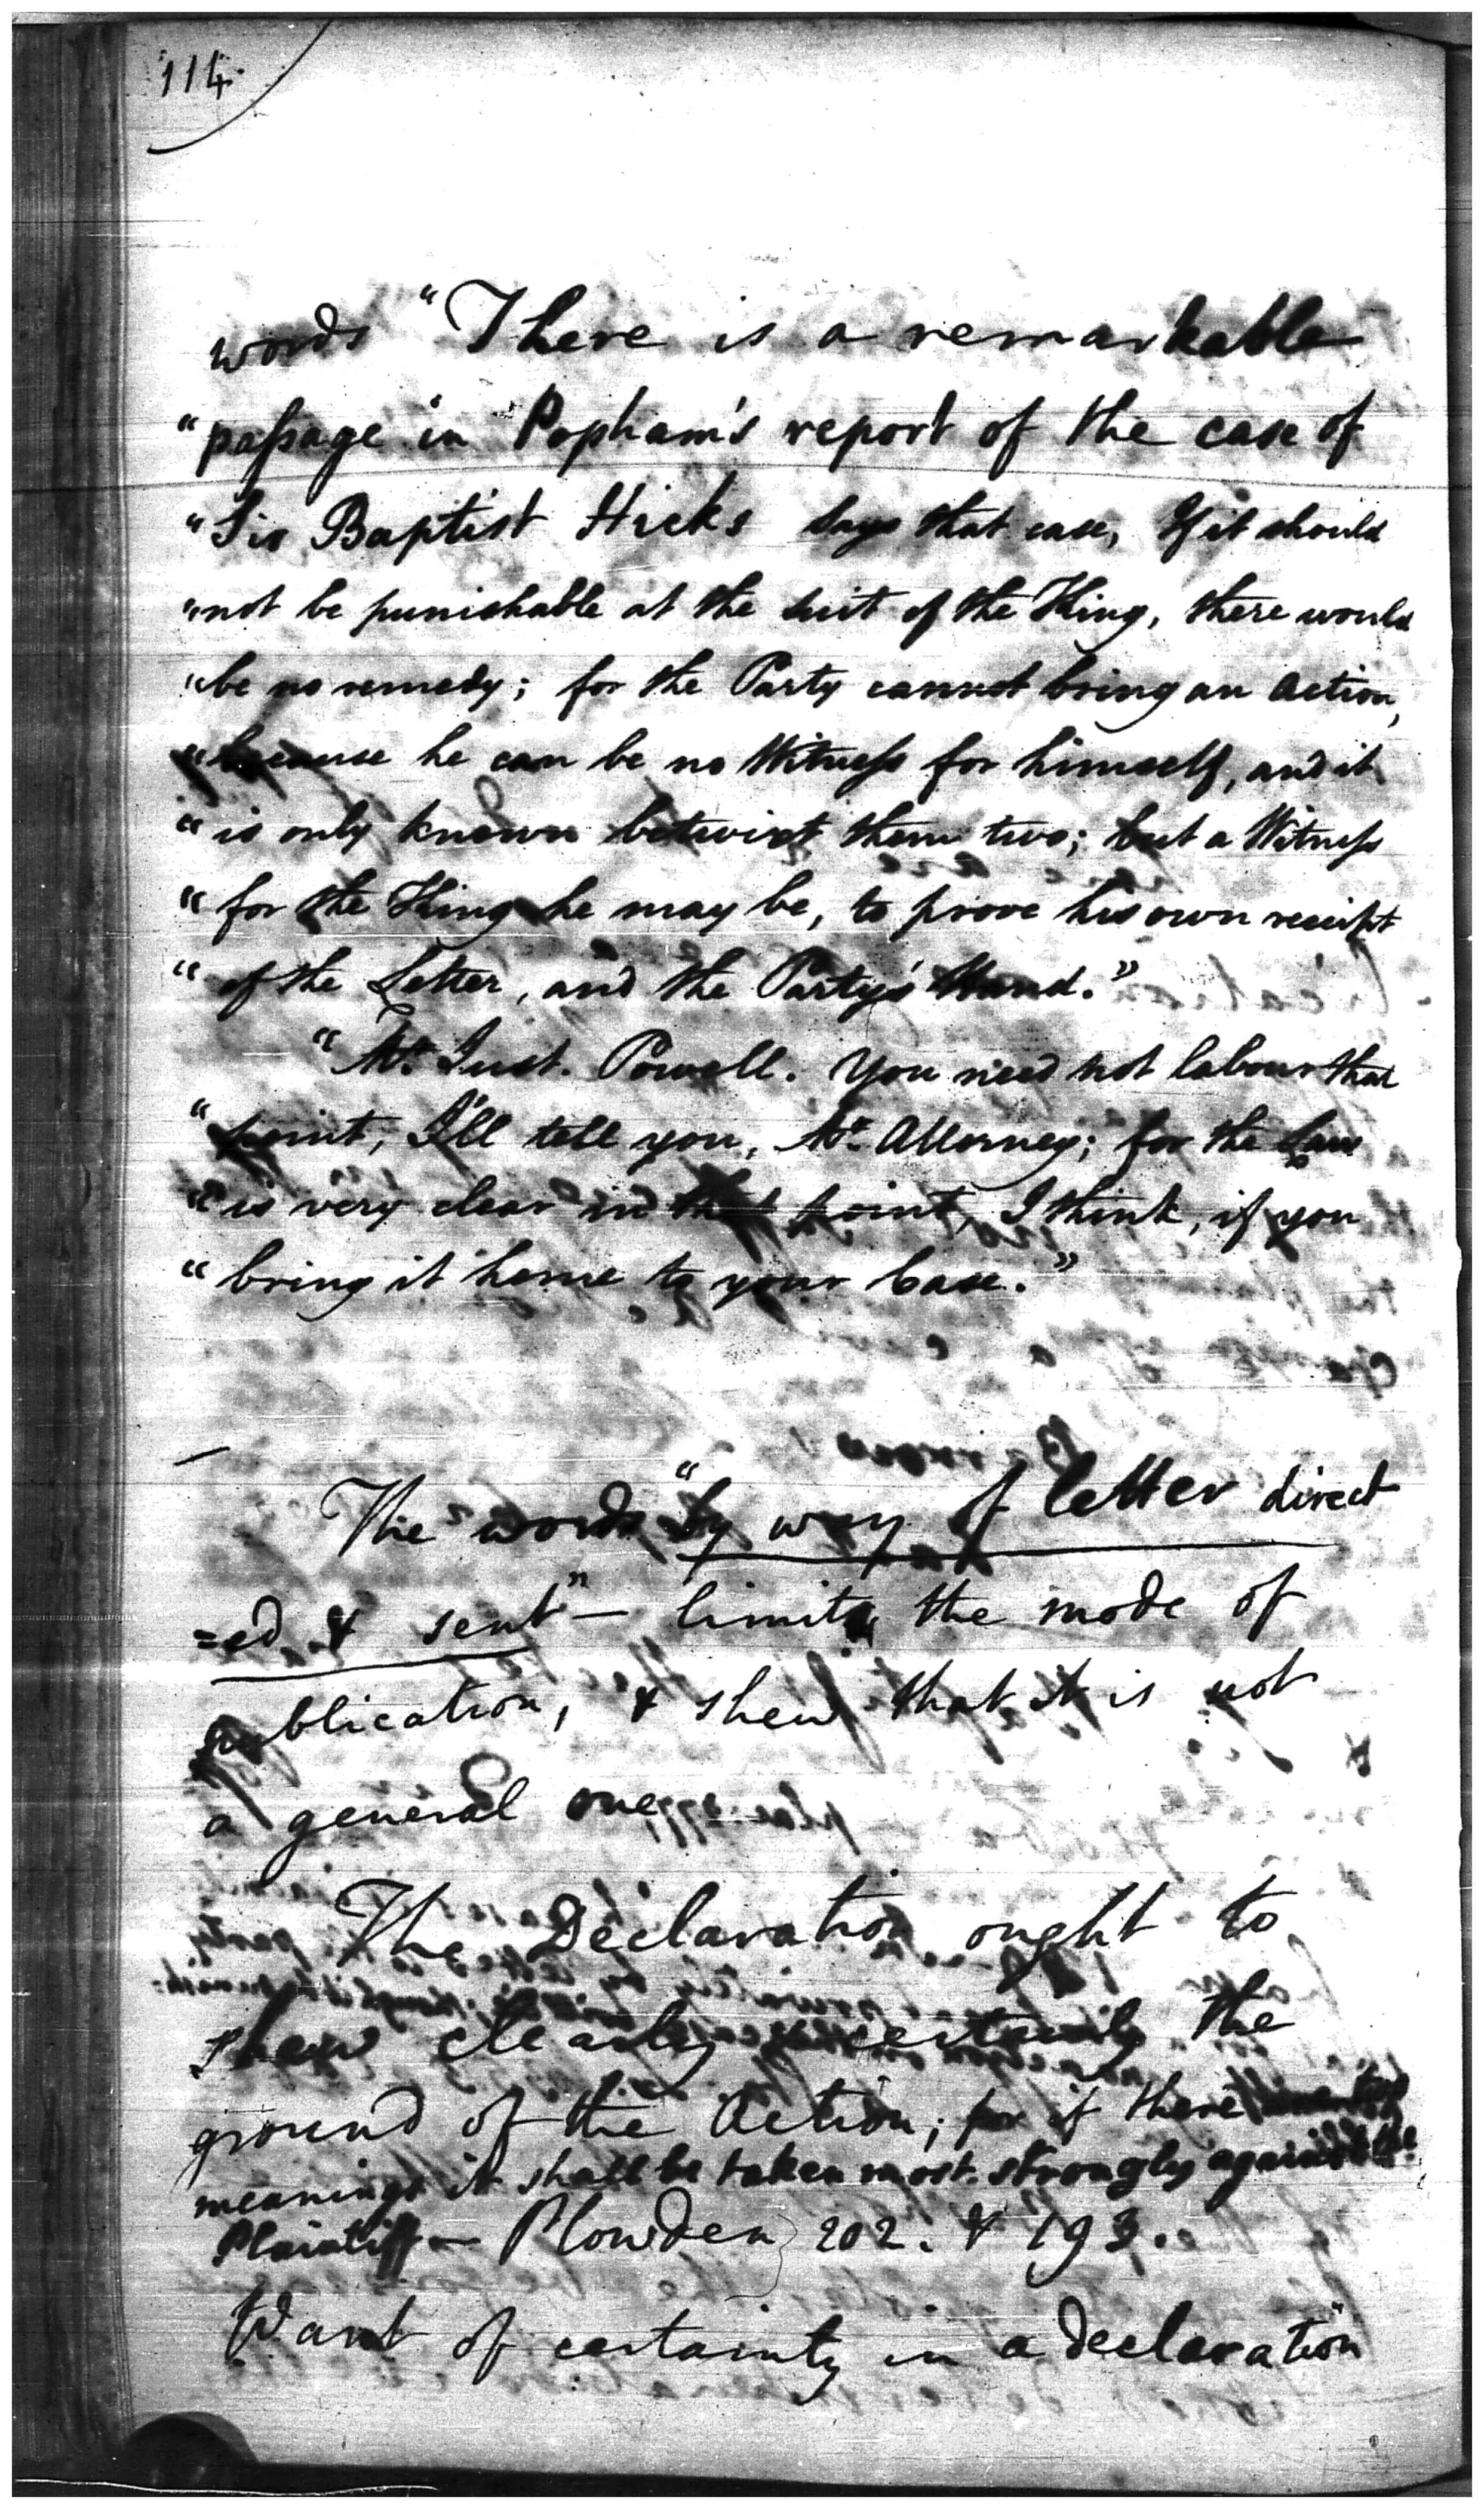 114.
words "There is a remarkable
"passage in Popham's report of the case of
"Sir Baptist Hicks says that case, If it should
"not be punishable at the suit of the King, there would
"be no remedy; for the Party cannot bring an Action,
"because he can be no Witness for himself, and it
"is only known betwixt them two; but a Witness
"for the King he may be, to prove his own receipt
"of the Letter, and the Party's Hand."
"Mr. Just. Powell. You need not labour that
"point, I'll tell you, Mr. Attorney; for the Law
"is very clear in that point, I think, if you
"bring it home to your Case."
The words "by way of letter direct
=ed & sent" — limits the mode of
publication, & shew that it is not
a general one,
The Declaration ought to
shew clearly & certainly the
ground of the Action; for if there
meanings it shall be taken most strongly against the
Plaintiff — Plowden 202. & 193.
Want of certainty in a declaration